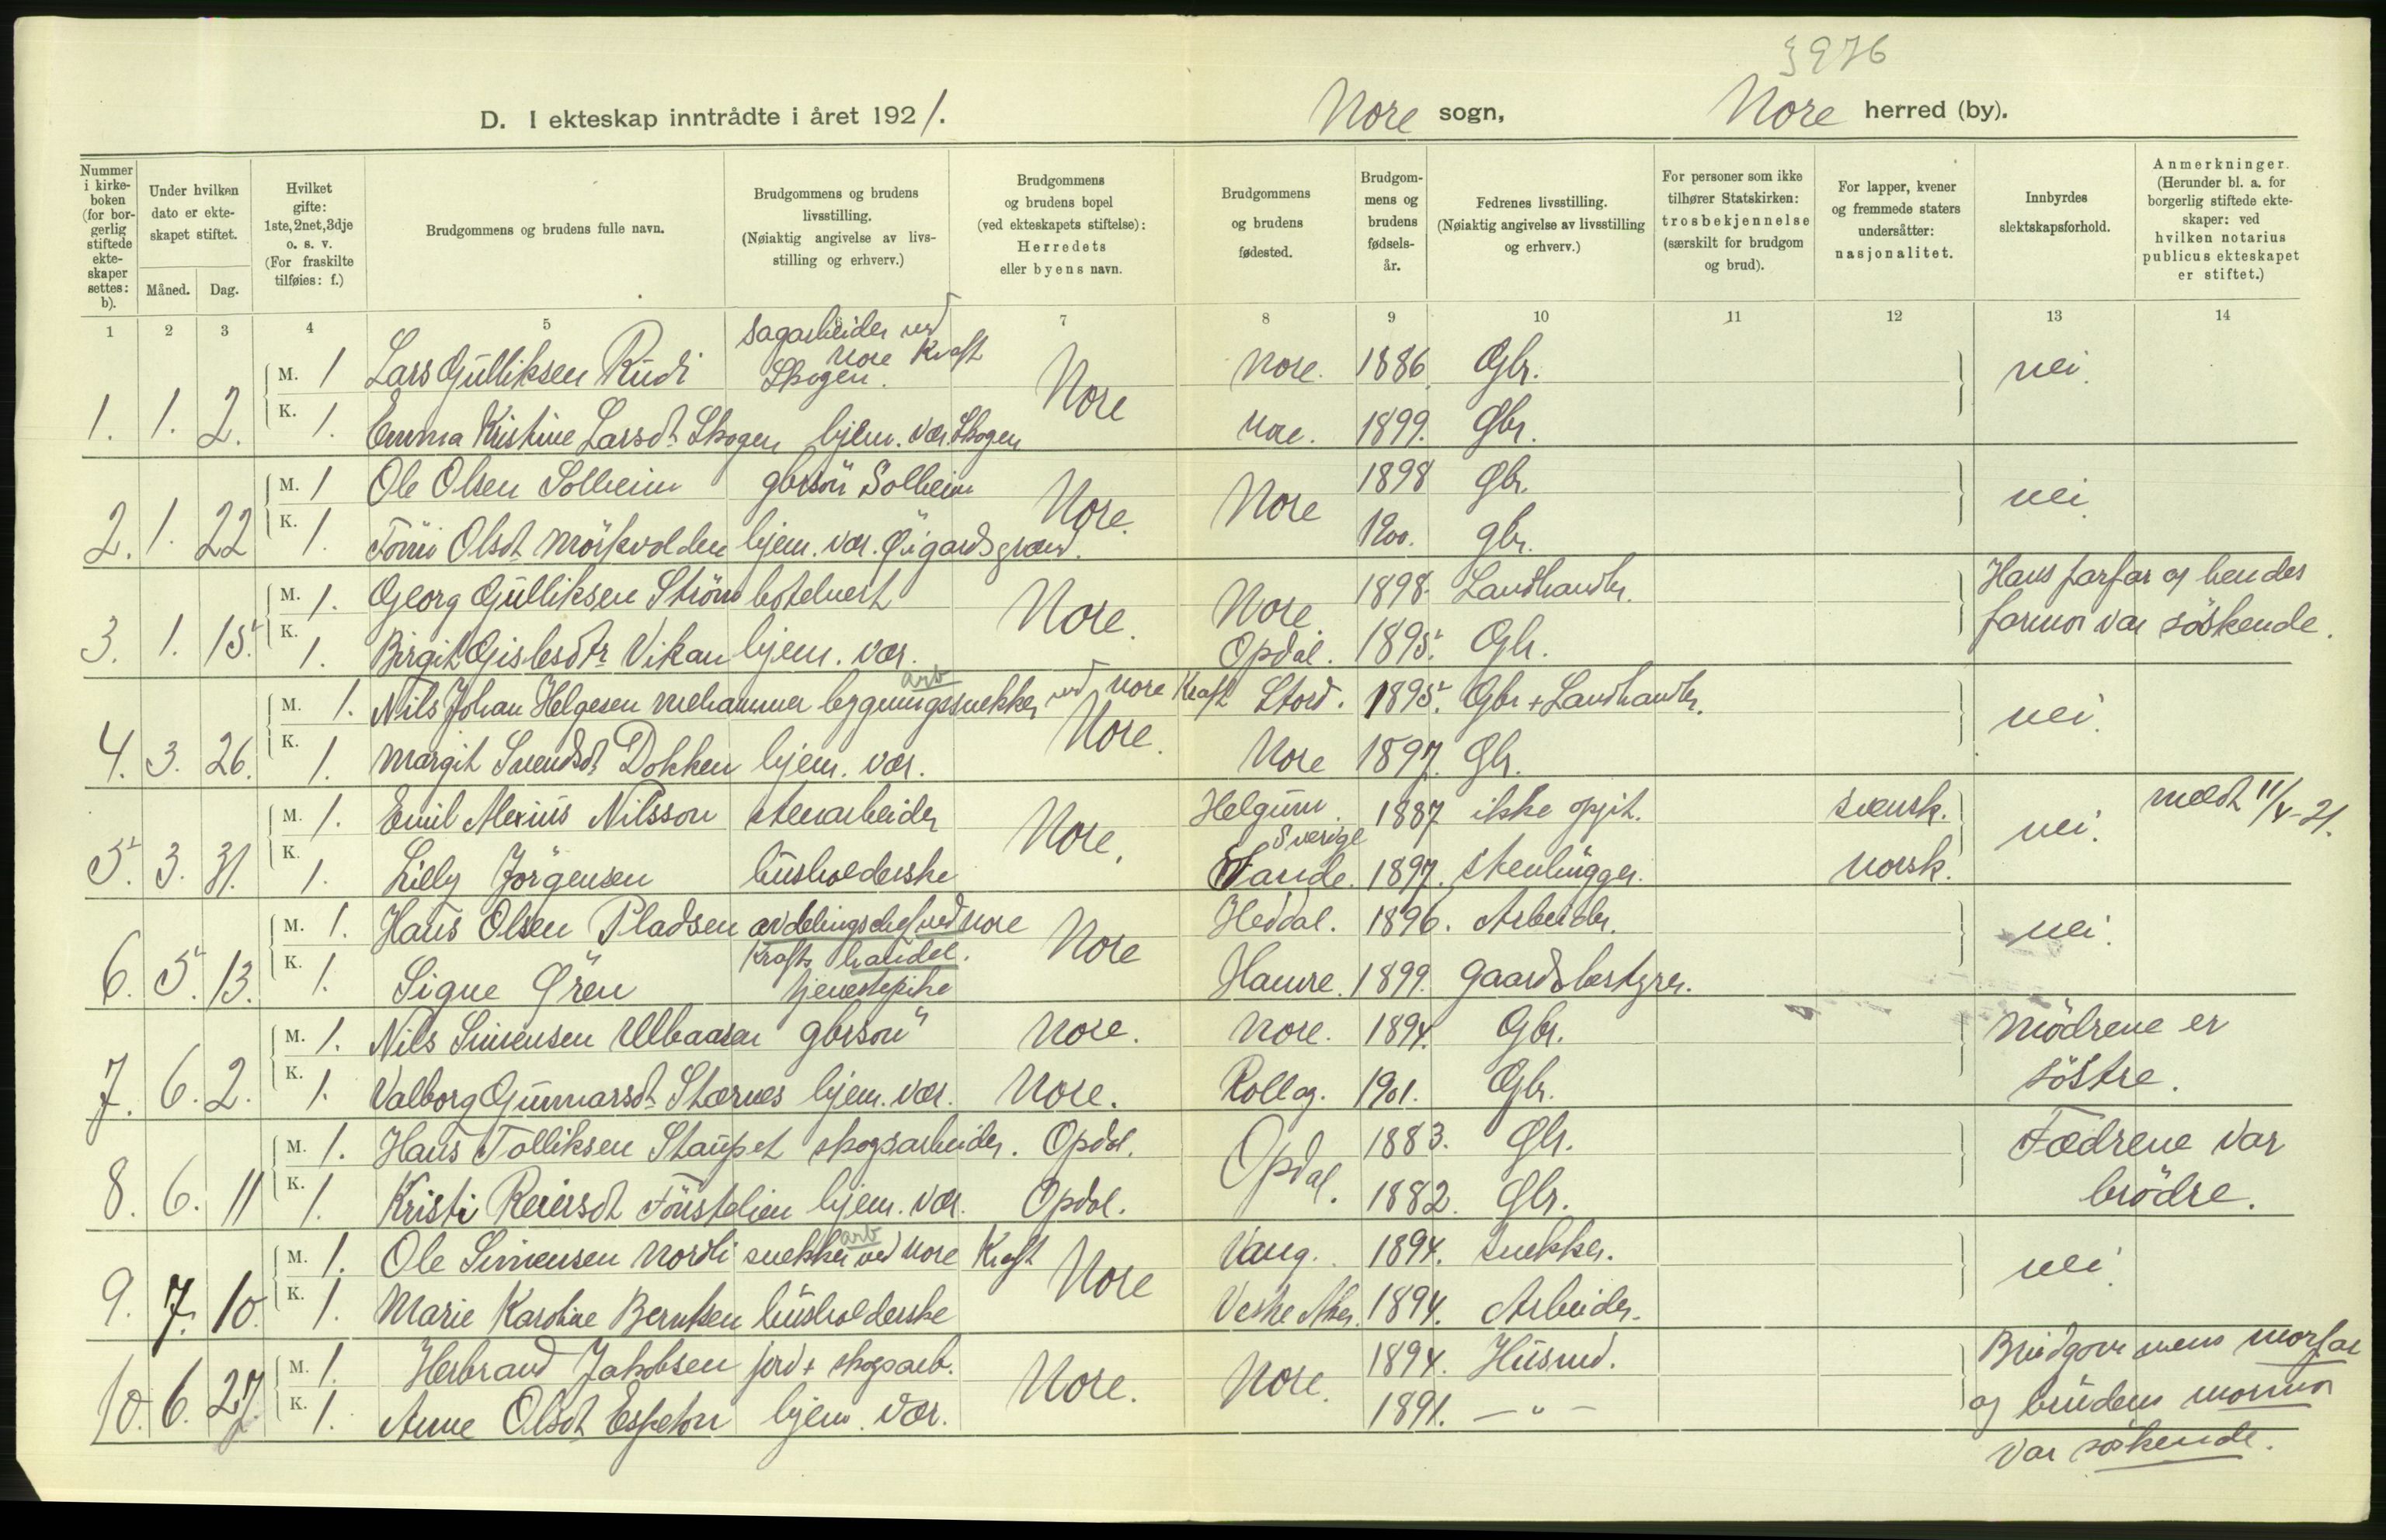 3976
D. I ekteskap inntrådte i året 1921. Nore sogn, Nore herred (by).
Nummer i kirke-boken (for bor-gerlig stiftede ekte-skaper settes: b).
Under hvilken dato er ekte-skapet stiftet.
Måned. Dag.
Hvilket gifte: 1ste, 2net, 3dje o. s. v. (For fraskilte tilføies: f.)
Brudgommens og brudens fulle navn.
Brudgommens og brudens livsstilling. (Nøiaktig angivelse av livs-stilling og erhverv.)
Brudgommens og brudens bopel (ved ekteskapets stiftelse): Herredets eller byens navn.
Brudgommens og brudens fødested.
Brudgom-mens og brudens fødsels-år.
Fedrenes livsstilling. (Nøiaktig angivelse av livsstilling og erhverv.)
For personer som ikke tilhører Statskirken: trosbekjennelse (særskilt for brudgom og brud).
For lapper, kvener og fremmede staters undersåtter: nasjonalitet.
Innbyrdes slektskapsforhold.
Anmerkninger. (Herunder bl. a. for borgerlig stiftede ekte-skaper: ved hvilken notarius publicus ekteskapet er stiftet.)
1 2 3 4 5 7 8 9 10 11 12 13 14
sagarbeider ved
Nore Kraft
M. 1 Lars Gulliksen Rudi Skogen. Nore. 1886. Gbr. nei.
1. 1. 2. Nore
K. 1. Emma Kristine Larsdt Skogen hjem. vær. Skogen Nore. 1899. Gbr.
M. 1 Ole Olsen Solheim gbrsön Solheim 1898 Gbr. nei.
2. 1. 22 Nore. Nore
K. 1. Olsdt Mörkvolden hjem. vær. 1900. gbr.
M. 1. Georg Gulliksen Ström hotelvert Nore. Nore. 1898. Landhandlr. Hans farfar og hendes
3. 1. 15.
K. 1. Birgit Gislesdtr Vikan hjem. vær. Opdal. 1895. Gbr. farmor var söskende.
arb
M. 1. Nils Johan Helgesen Mehammer bygningssnekker ved Nore Kraft Stord. 1895. Gbr + Landhandlr. nei.
4. 3. 26. Nore.
K. 1. Margit Svendsdt Dokken hjem. vær. Nore 1897. Gbr.
M. 1. Emil Alexius Nilsson stenarbeider Helgum. 1887 ikke opgit. svensk. meldt 11/4-21.
Sverige
5. 3. 31. Nore. nei.
K. 1. Lilly Jörgensen husholderske Sande. 1897. Stenhugger. norsk.
M. 1. Hans Olsen Pladsen avdelingschef ved Nore Heddal. 1896. Arbeider. nei.
Krafts handel.
6. 5. 13. Nore
K. 1. Signe Gren tjenestepike Hamre. 1899. Gaardsbestyrer.
M. 1. Nils Simensen Ulbaasen gbrsön Nore. Nore. 1894. Gbr. Mödrene er
7. 6. 2.
K. 1. Valborg Gunnarsdt Stærnes hjem. vær. Nore. Rollag. 1901. Gbr. söstre.
M. 1. Hans Tolliksen Staupet skogsarbeider. Opdal. 1883. Gbr. Fædrene var
8. 6. 11 Opdal.
K. 1. Kristi Reiersdt Fönstelien hjem. vær. Opdal. 1882. Gbr. brödre.
arb
M. 1. Ole Simensen Nordli snekker ved Nore Kraft Vang. 1894. Snekker. nei.
9. 7. 10. Nore
K. 1. Marie Karoline Berntsen husholderske Vestre Aker. 1894. Arbeider.
M. 1. Herbrand Jakobsen jord + skogsarb. 1894. Husmd. Brudgommens morfar
10. 6. 27. Nore. Nore.
K. 1. Anne Olsdt Espeton hjem. vær. 1891. — " — og brudens mormor
var söskende.